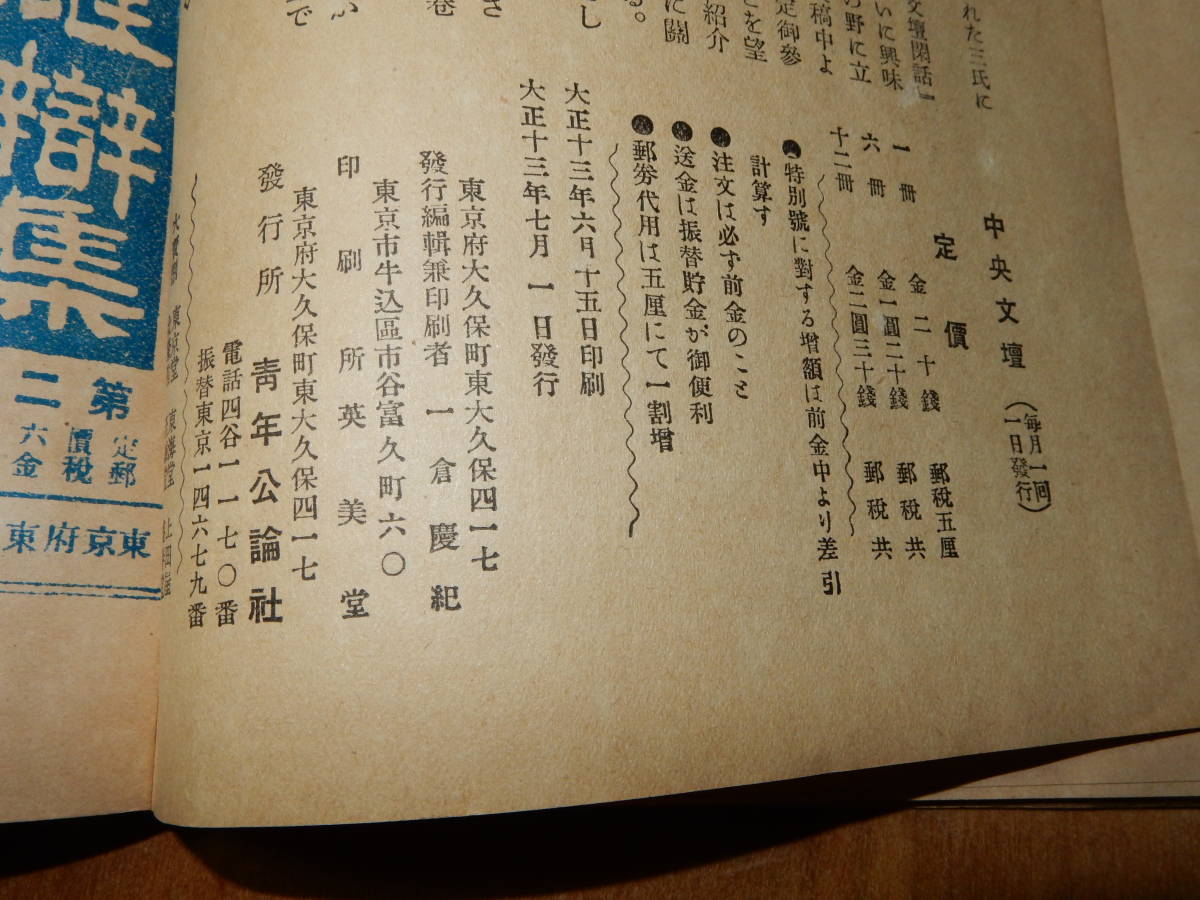 れた三氏に
文壇閑話』
いに興味
の野に立
稿中よ
定御參
とを望
紹介
に關
る。
中央文壇（毎月一回一日發行）
定價
一冊　金二十錢　郵稅五厘
六冊　金一圓二十錢　郵稅共
十二冊　金二圓三十錢　郵稅共
●特別號に對する增額は前金中より差引
計算す
●注文は必ず前金のこと
●送金は振替貯金が御便利
●郵劵代用は五厘にて一割增
大正十三年六月十五日印刷
大正十三年七月一日發行
東京府大久保町東大久保四一七
發行編輯兼印刷者　一倉慶紀
東京市牛込區市谷富久町六〇
印刷所　英美堂
東京府大久保町東大久保四一七
發行所　靑年公論社
電話四谷一一七〇番
振替東京一四六七九番
東京堂
辯集
第二
定價
郵稅
六金
東京府東